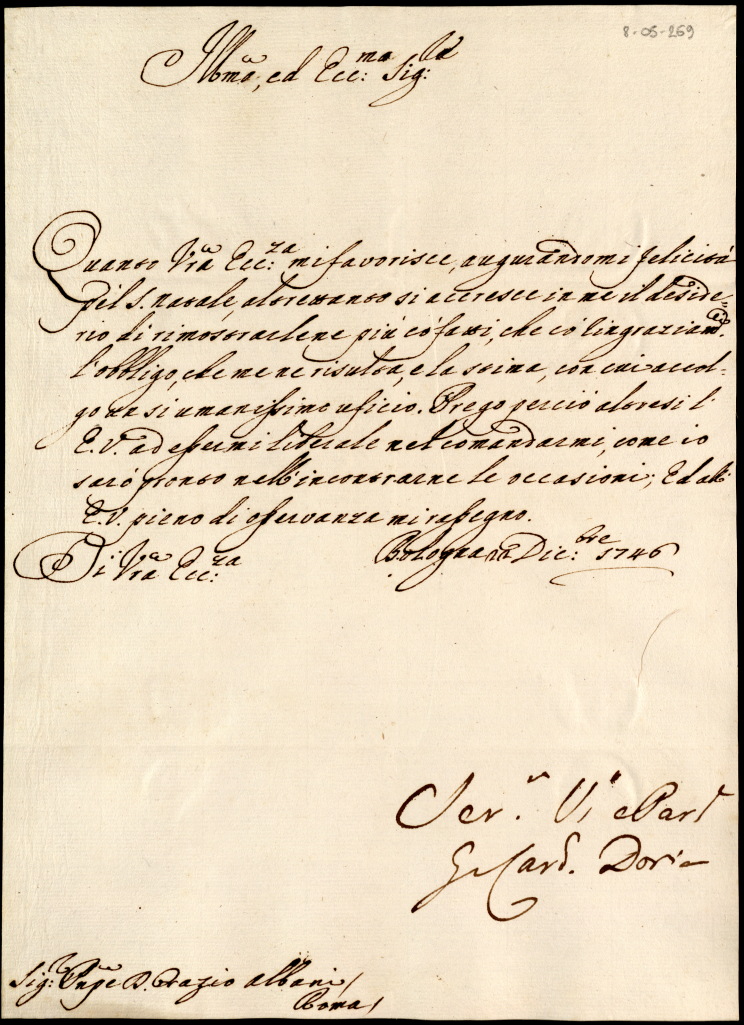 8-05-269
Illma, ed Ecc:ma Sig:ra
Quanto Vra Ecc:za mi favorisce, augurandomi felicità
pel S. natale, altrettanto si accresce in me il deside-
rio di rimostrarlene più có fatti, che có lingraziam.ti
l'obbligo, che me ne risulta, e la stima, con cui accol-
go un si umanissimo uficio. Prego perciò altresi l'
E.V. ad essermi liberale nel comandarmi, come io
sarò pronto nell'incontrarne le occasioni; Ed all'
E.V. pieno di osservanza mi rassegno.
Di Vra Ecc:za
Bologna Dic:bre 1746
Ser.r V.o e Par.l
G. Card. Doria
Sig:r Pnpe D. Orazio Albani
Roma